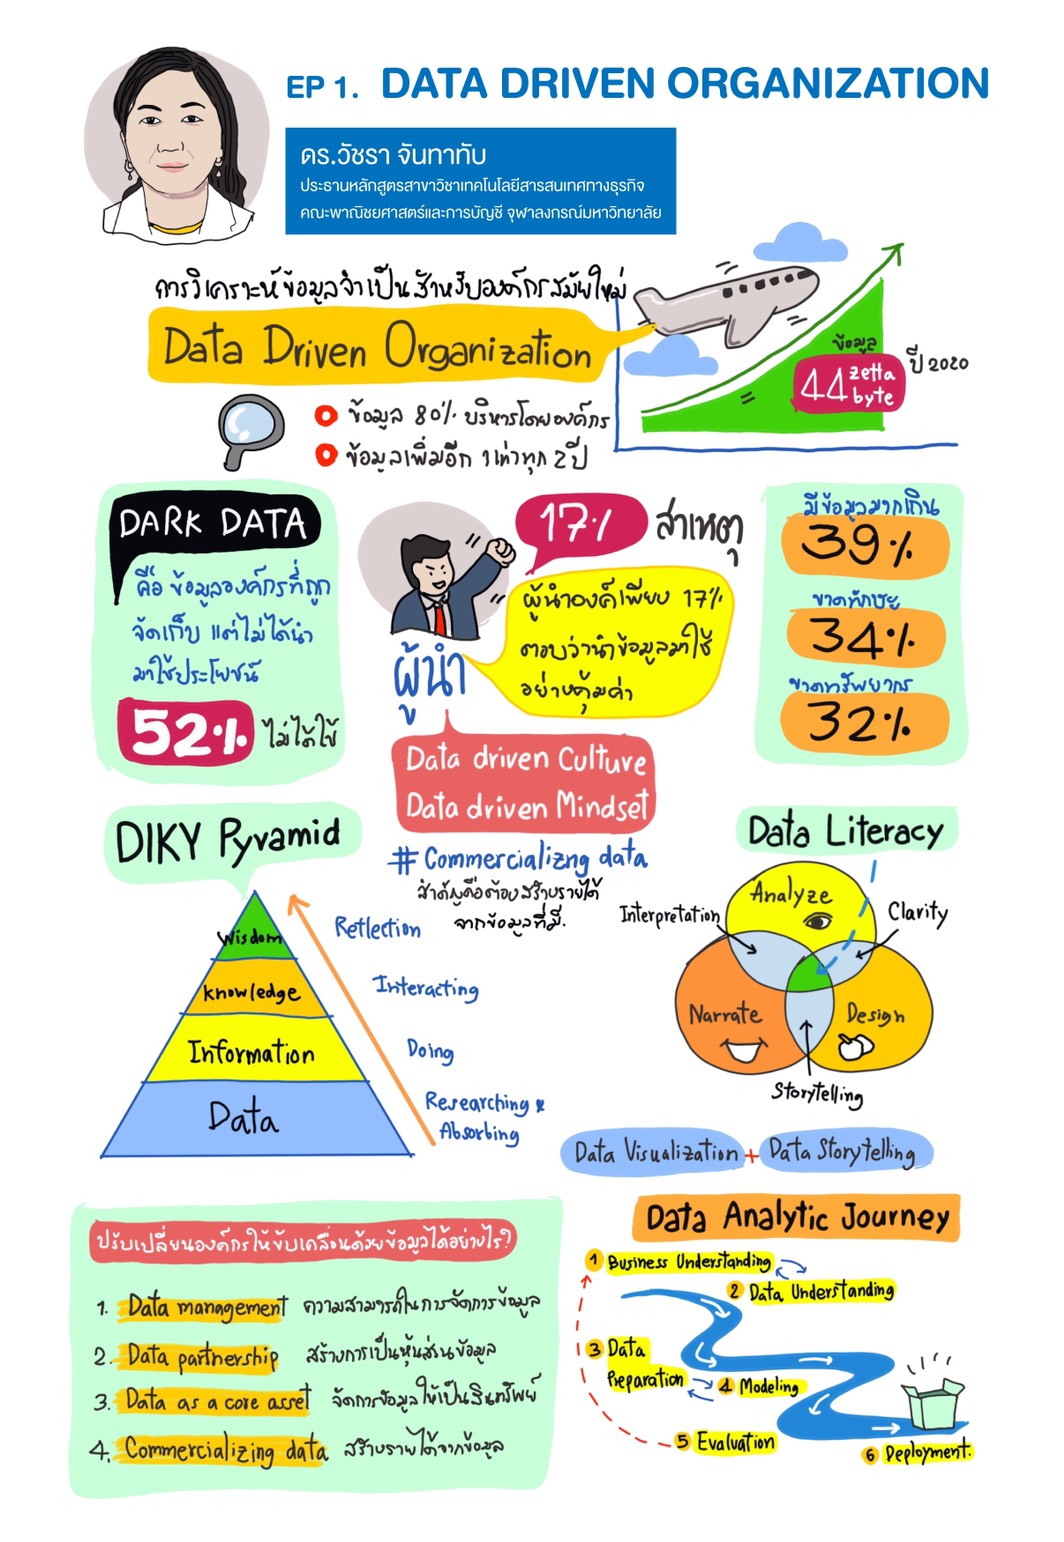 EP 1. DATA DRIVEN ORGANIZATION
ดร.วัชรา จันทาทับ
ประธานหลักสูตรสาขาวิชาเทคโนโลยีสารสนเทศทางธุรกิจ
คณะพาณิชยศาสตร์และการบัญชี จุฬาลงกรณ์มหาวิทยาลัย
การวิเคราะห์ข้อมูลจำเป็นสำหรับองค์กรสมัยใหม่
Data Driven Organization
ข้อมูล 80% บริหารโดยองค์กร
ข้อมูลเพิ่มอีก 1 เท่าทุก 2 ปี
ข้อมูล
44 zetta byte
ปี 2020
DARK DATA
คือ ข้อมูลองค์กรที่ถูก
จัดเก็บ แต่ไม่ได้นำ
มาใช้ประโยชน์
52% ไม่ได้ใช้
17%
ผู้นำองค์เพียง 17%
ตอบว่านำข้อมูลมาใช้
อย่างคุ้มค่า
ผู้นำ
Data driven Culture
Data driven Mindset
# Commercializng data
สำคัญคือต้องสร้างรายได้
จากข้อมูลที่มี.
สาเหตุ
มีข้อมูลมากเกิน
39%
ขาดทักษะ
34%
ขาดทรัพยากร
32%
DIKY Pyramid
Wisdom
Knowledge
Information
Data
Retlection
Interacting
Doing
Researching &
Absorbing
Data Literacy
Analyze
Interpretation
Clarity
Narrate
Design
Storytelling
Data Visualization + Data Storytelling
ปรับเปลี่ยนองค์กรให้ขับเคลื่อนด้วยข้อมูลได้อย่างไร?
1. Data management ความสามารถในการจัดการข้อมูล
2. Data partnership สร้างการเป็นหุ้นส่วนข้อมูล
3. Data as a core asset จัดการข้อมูลให้เป็นสินทรัพย์
4. Commercializing data สร้างรายได้จากข้อมูล
Data Analytic Journey
1 Business Understanding
2 Data Understanding
3 Data
Preparation
4 Modeling
5 Evaluation
6 Deployment.